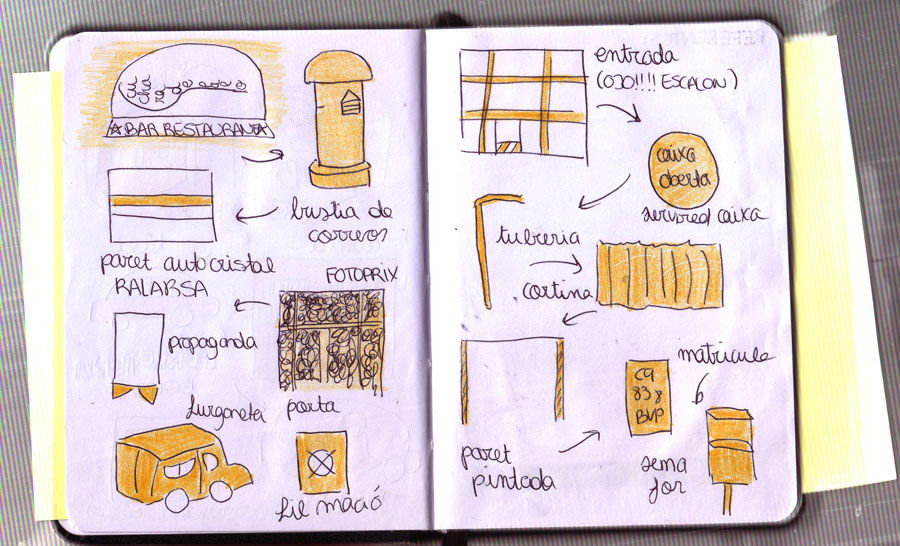 ★BAR RESTAURANT★
bustia de
correos
paret autocristal
RALARSA
FOTOPRIX
propaganda
porta
furgoneta
fil mació
entrada
(OJO!!!! ESCALON)
caixa
oberta
servired caixa
tuberia
cortina
paret
pintada
matricula
C9
838
BVP
sema
for